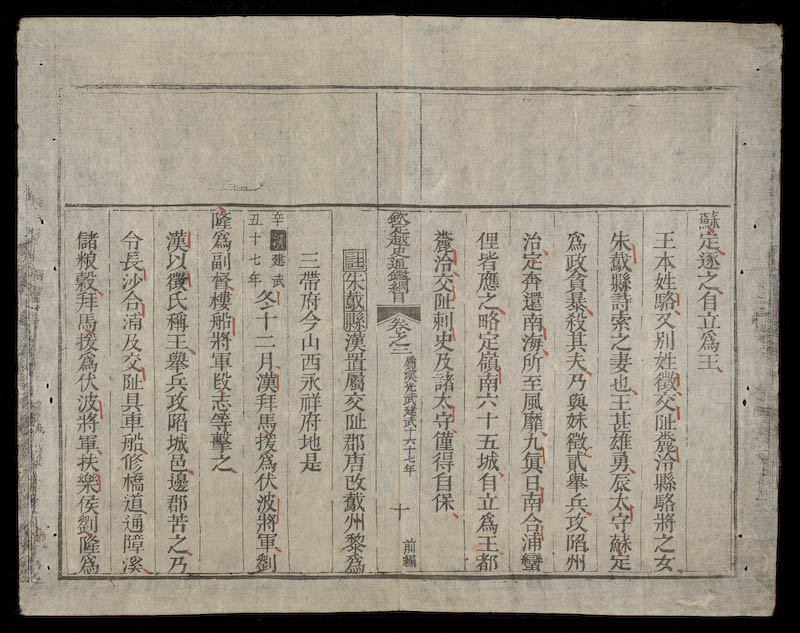 蘇定逐之自立爲王
王本姓駱又别姓徵交阯麊泠縣駱將之女
朱䳒縣詩索之妻也王甚雄勇辰太守蘇定
爲政貪暴殺其夫乃與妹徵貳舉兵攻陷州
治定奔還南海所至風靡九真日南合浦蠻
俚皆應之略定嶺南六十五城自立爲王都
麊泠交阯刺史及諸太守僅得自保
欽定越史通鑑綱目 卷之二 屬漢光武建武十六十七年 十 前編
註朱䳒縣漢置屬交阯郡唐改䳒州黎爲
三帶府今山西永祥府地是
辛丑漢建武十七年冬十二月漢拜馬援爲伏波將軍劉
隆爲副督樓船將軍段志等擊之
漢以徵氏稱王舉兵攻陷城邑邊郡苦之乃
令長沙合浦及交阯具車船修橋道通障溪
儲粮穀拜馬援爲伏波將軍扶樂侯劉隆爲